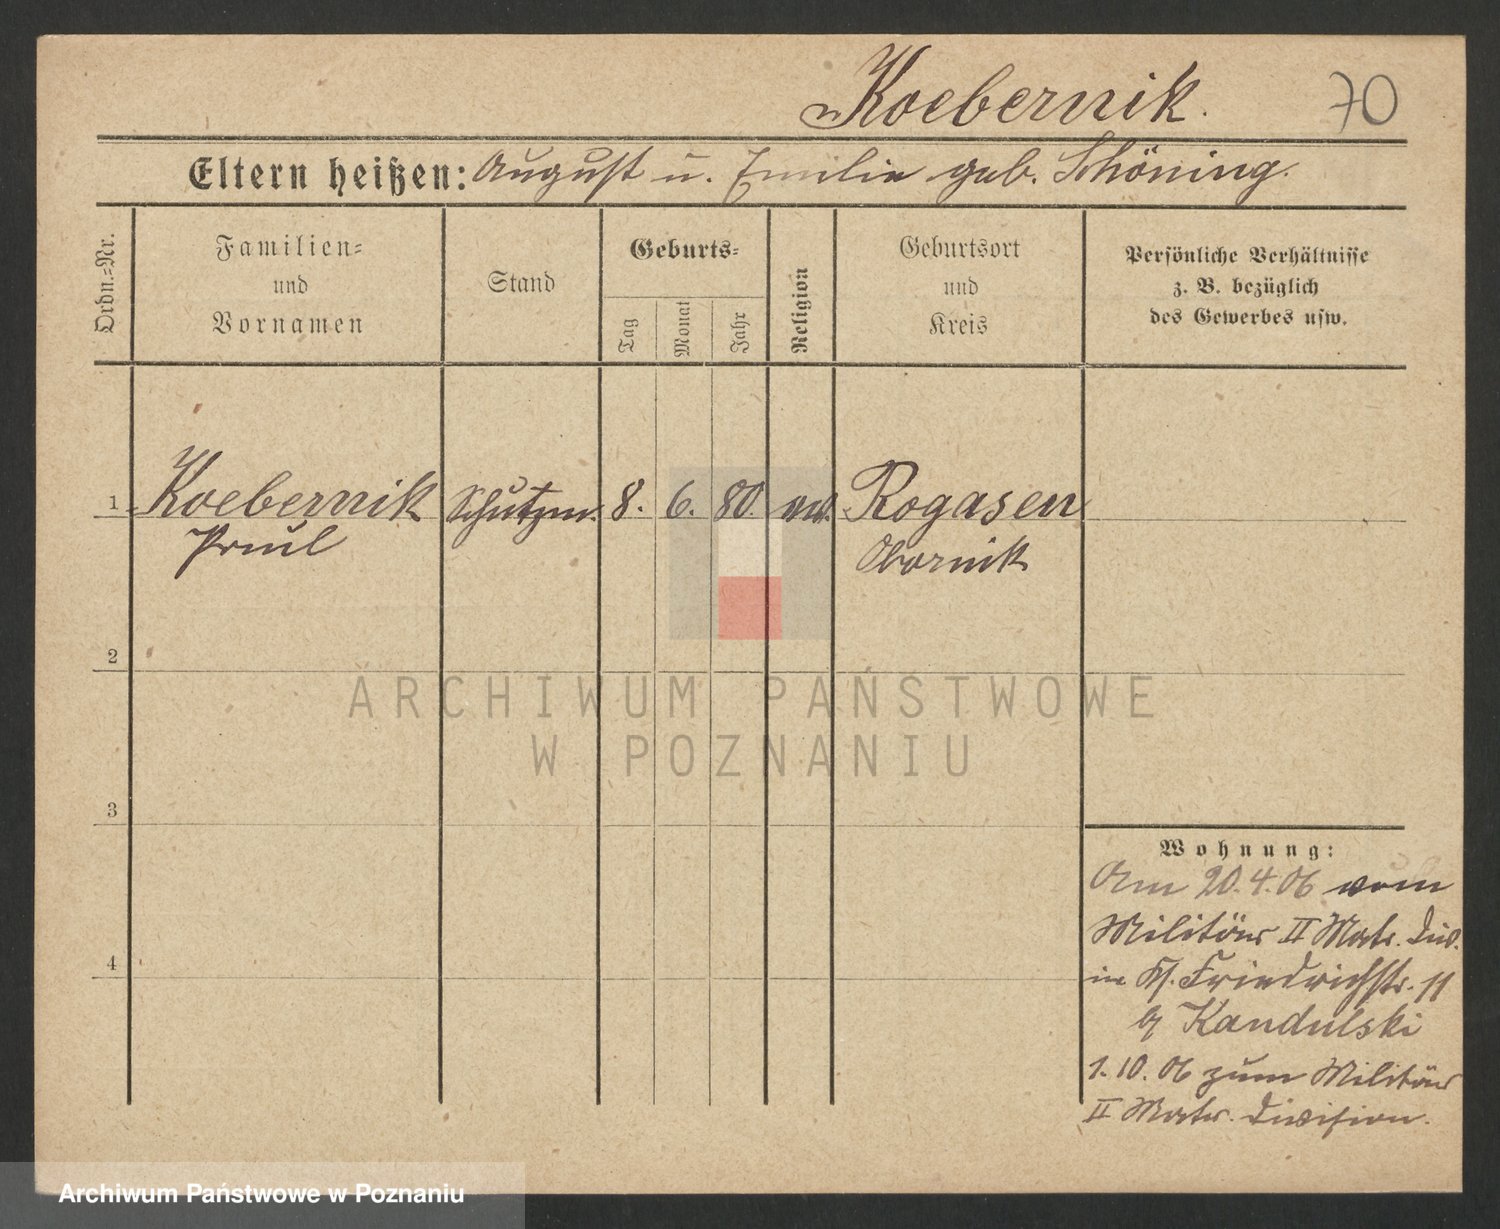 Koebernik. 70
Eltern heißen: August u. Emilie geb. Schöning.
Ordn.-Nr.
Familien-
und
Vornamen
Stand
Geburts-
Tag
Monat
Jahr
Religion
Geburtsort
und
Kreis
Persönliche Verhältnisse
z. B. bezüglich
des Gewerbes usw.
1 Koebernik Schutzm. 8. 6. 80. ev. Rogasen
Paul Obornik
2
ARCHIWUM PAŃSTWOWE
W POZNANIU
3
Wohnung:
Am 20.4.06 vom
Militär II Matr. Div.
in Friedrichstr. 11
b/ Kandulski
1.10.06 zum Militär
II Matr. Division.
4
Archiwum Państwowe w Poznaniu